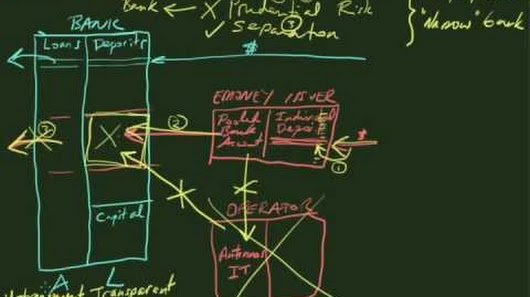 Bank ← X Prudential Risk
✓ Separation ③
"Narrow" bank
BANK
Loans Deposits
$
EMONEY ISSUER
Pooled Bank Account
Individual Deposits
$
②
③
X
①
OPERATOR
Capital
Antennas
IT
A L
Transparent